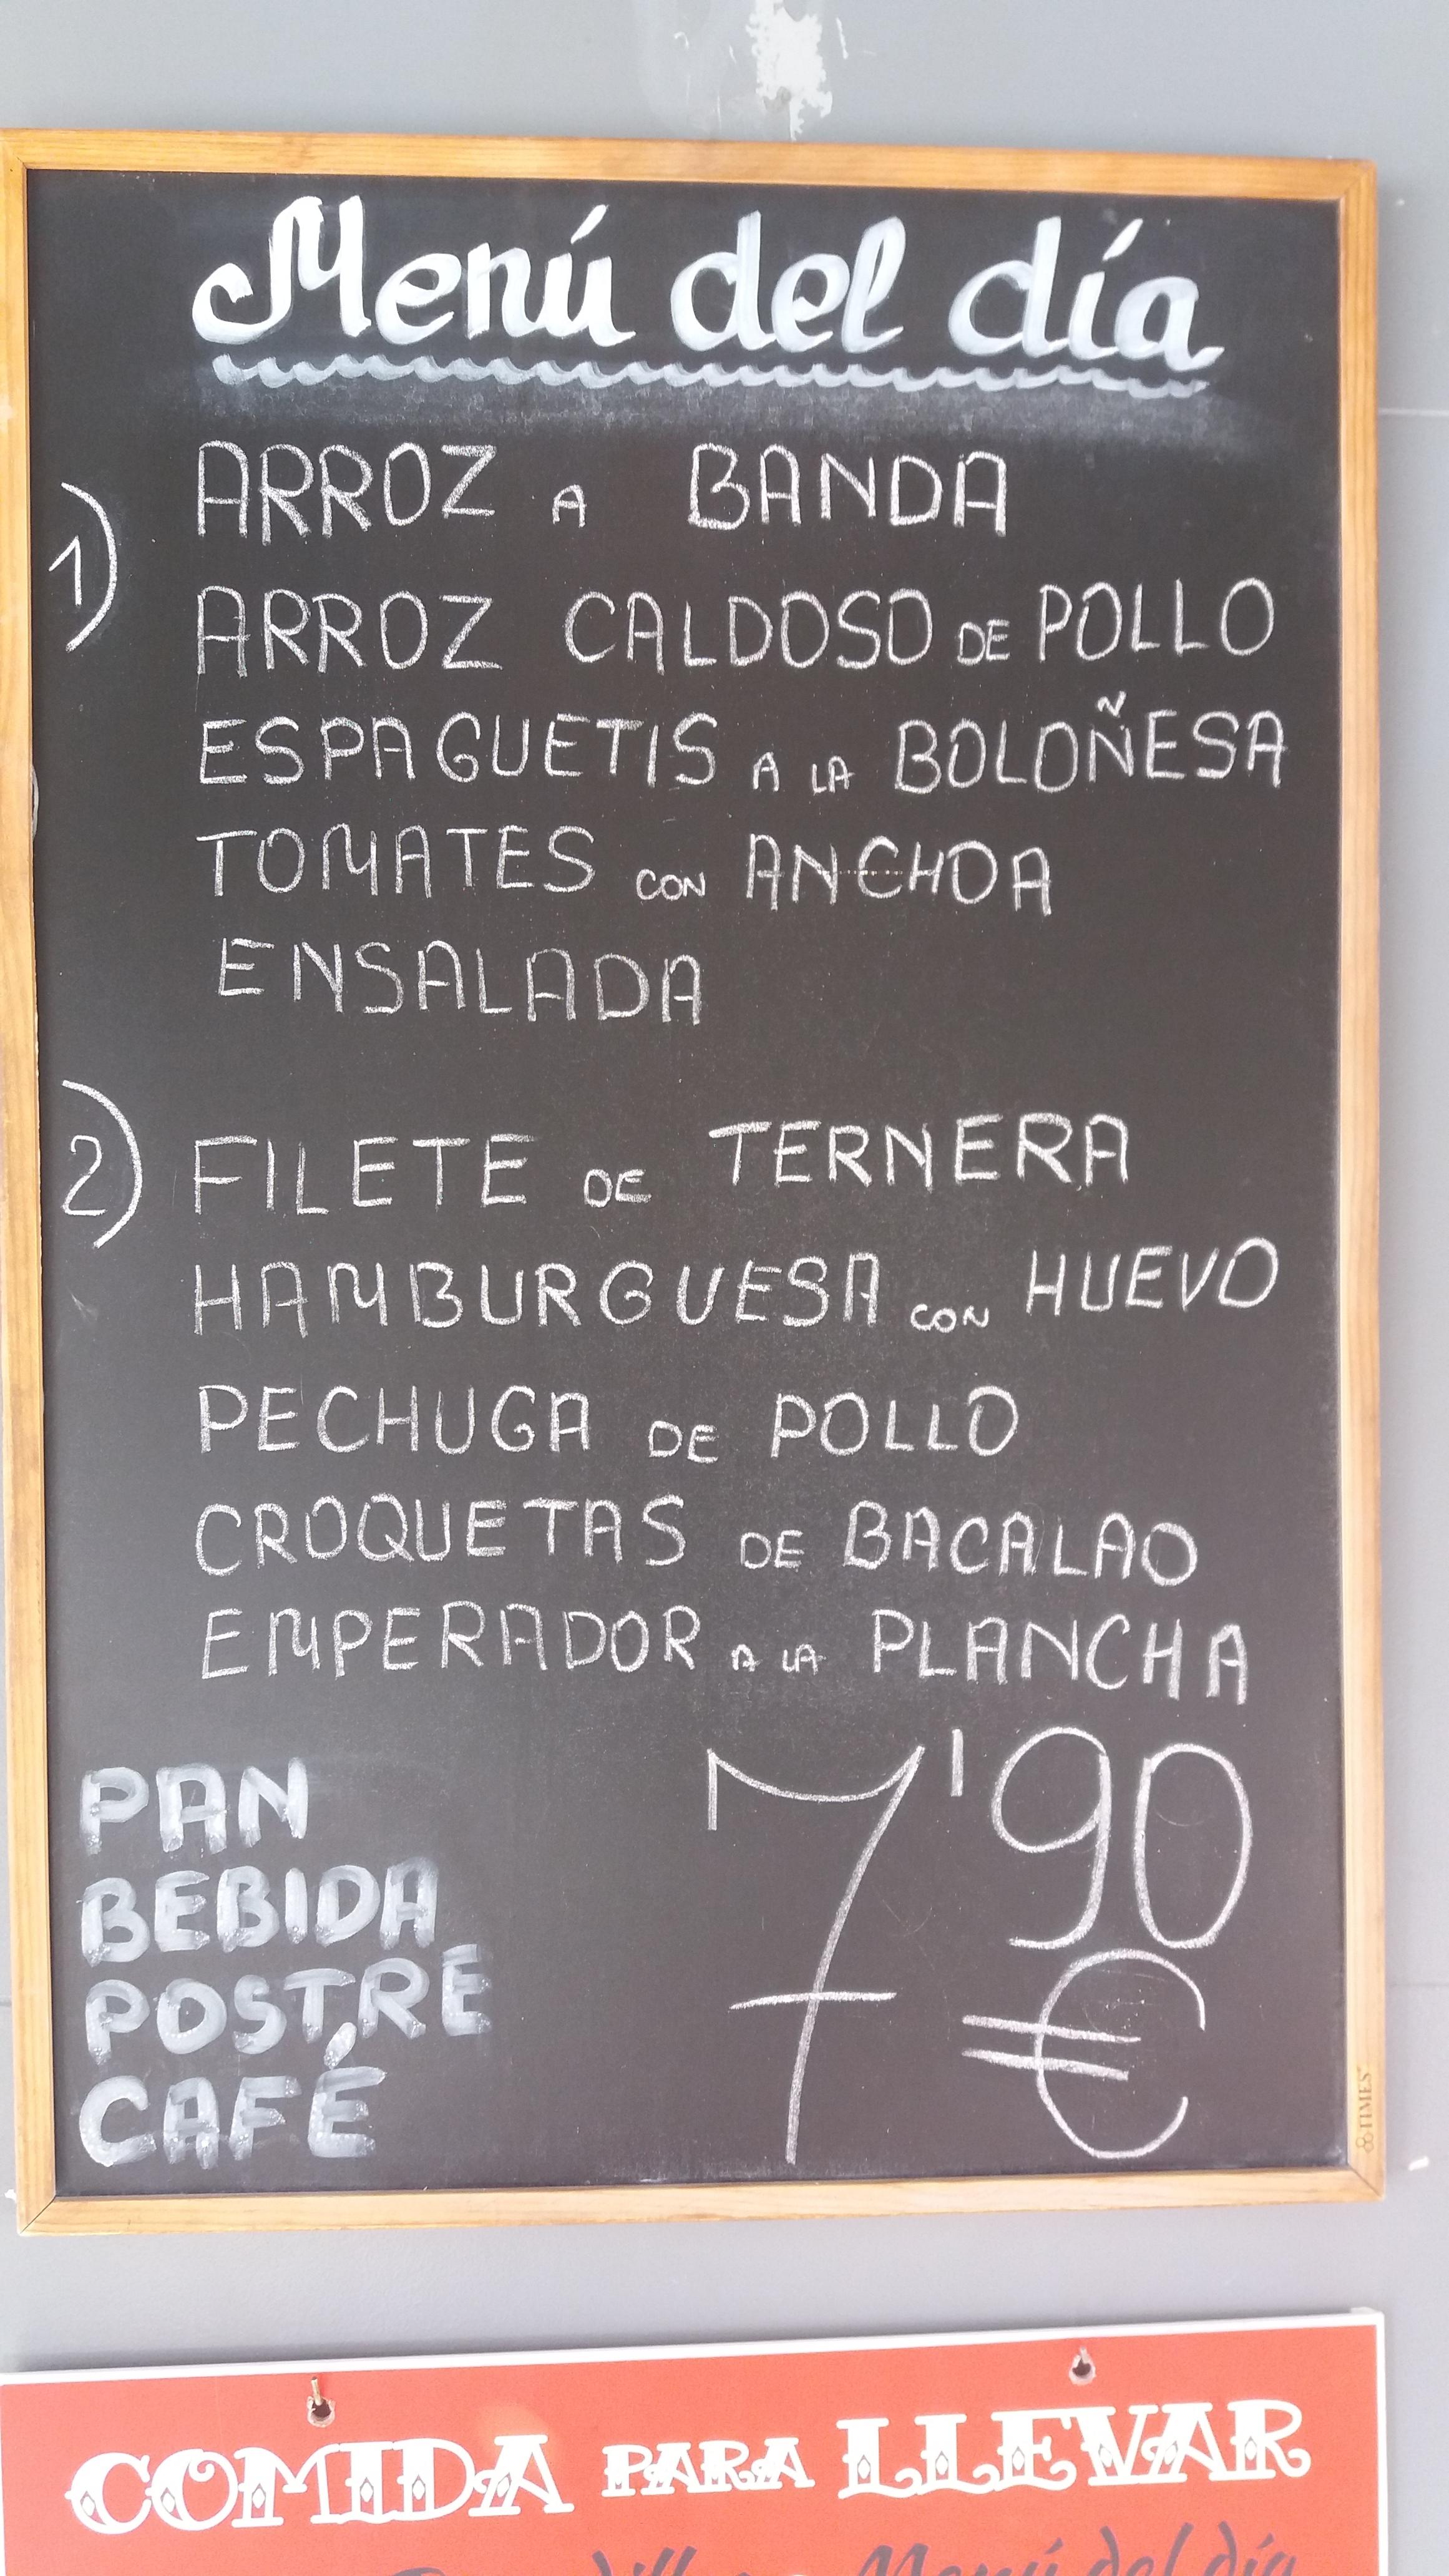 Menú del día
1)
ARROZ A BANDA
ARROZ CALDOSO DE POLLO
ESPAGUETIS A LA BOLOÑESA
TOMATES CON ANCHOA
ENSALADA
2)
FILETE DE TERNERA
HAMBURGUESA CON HUEVO
PECHUGA DE POLLO
CROQUETAS DE BACALAO
EMPERADOR A LA PLANCHA
PAN
BEBIDA
POSTRE
CAFÉ
7'90
€
TIMES
COMIDA PARA LLEVAR
Menú del día